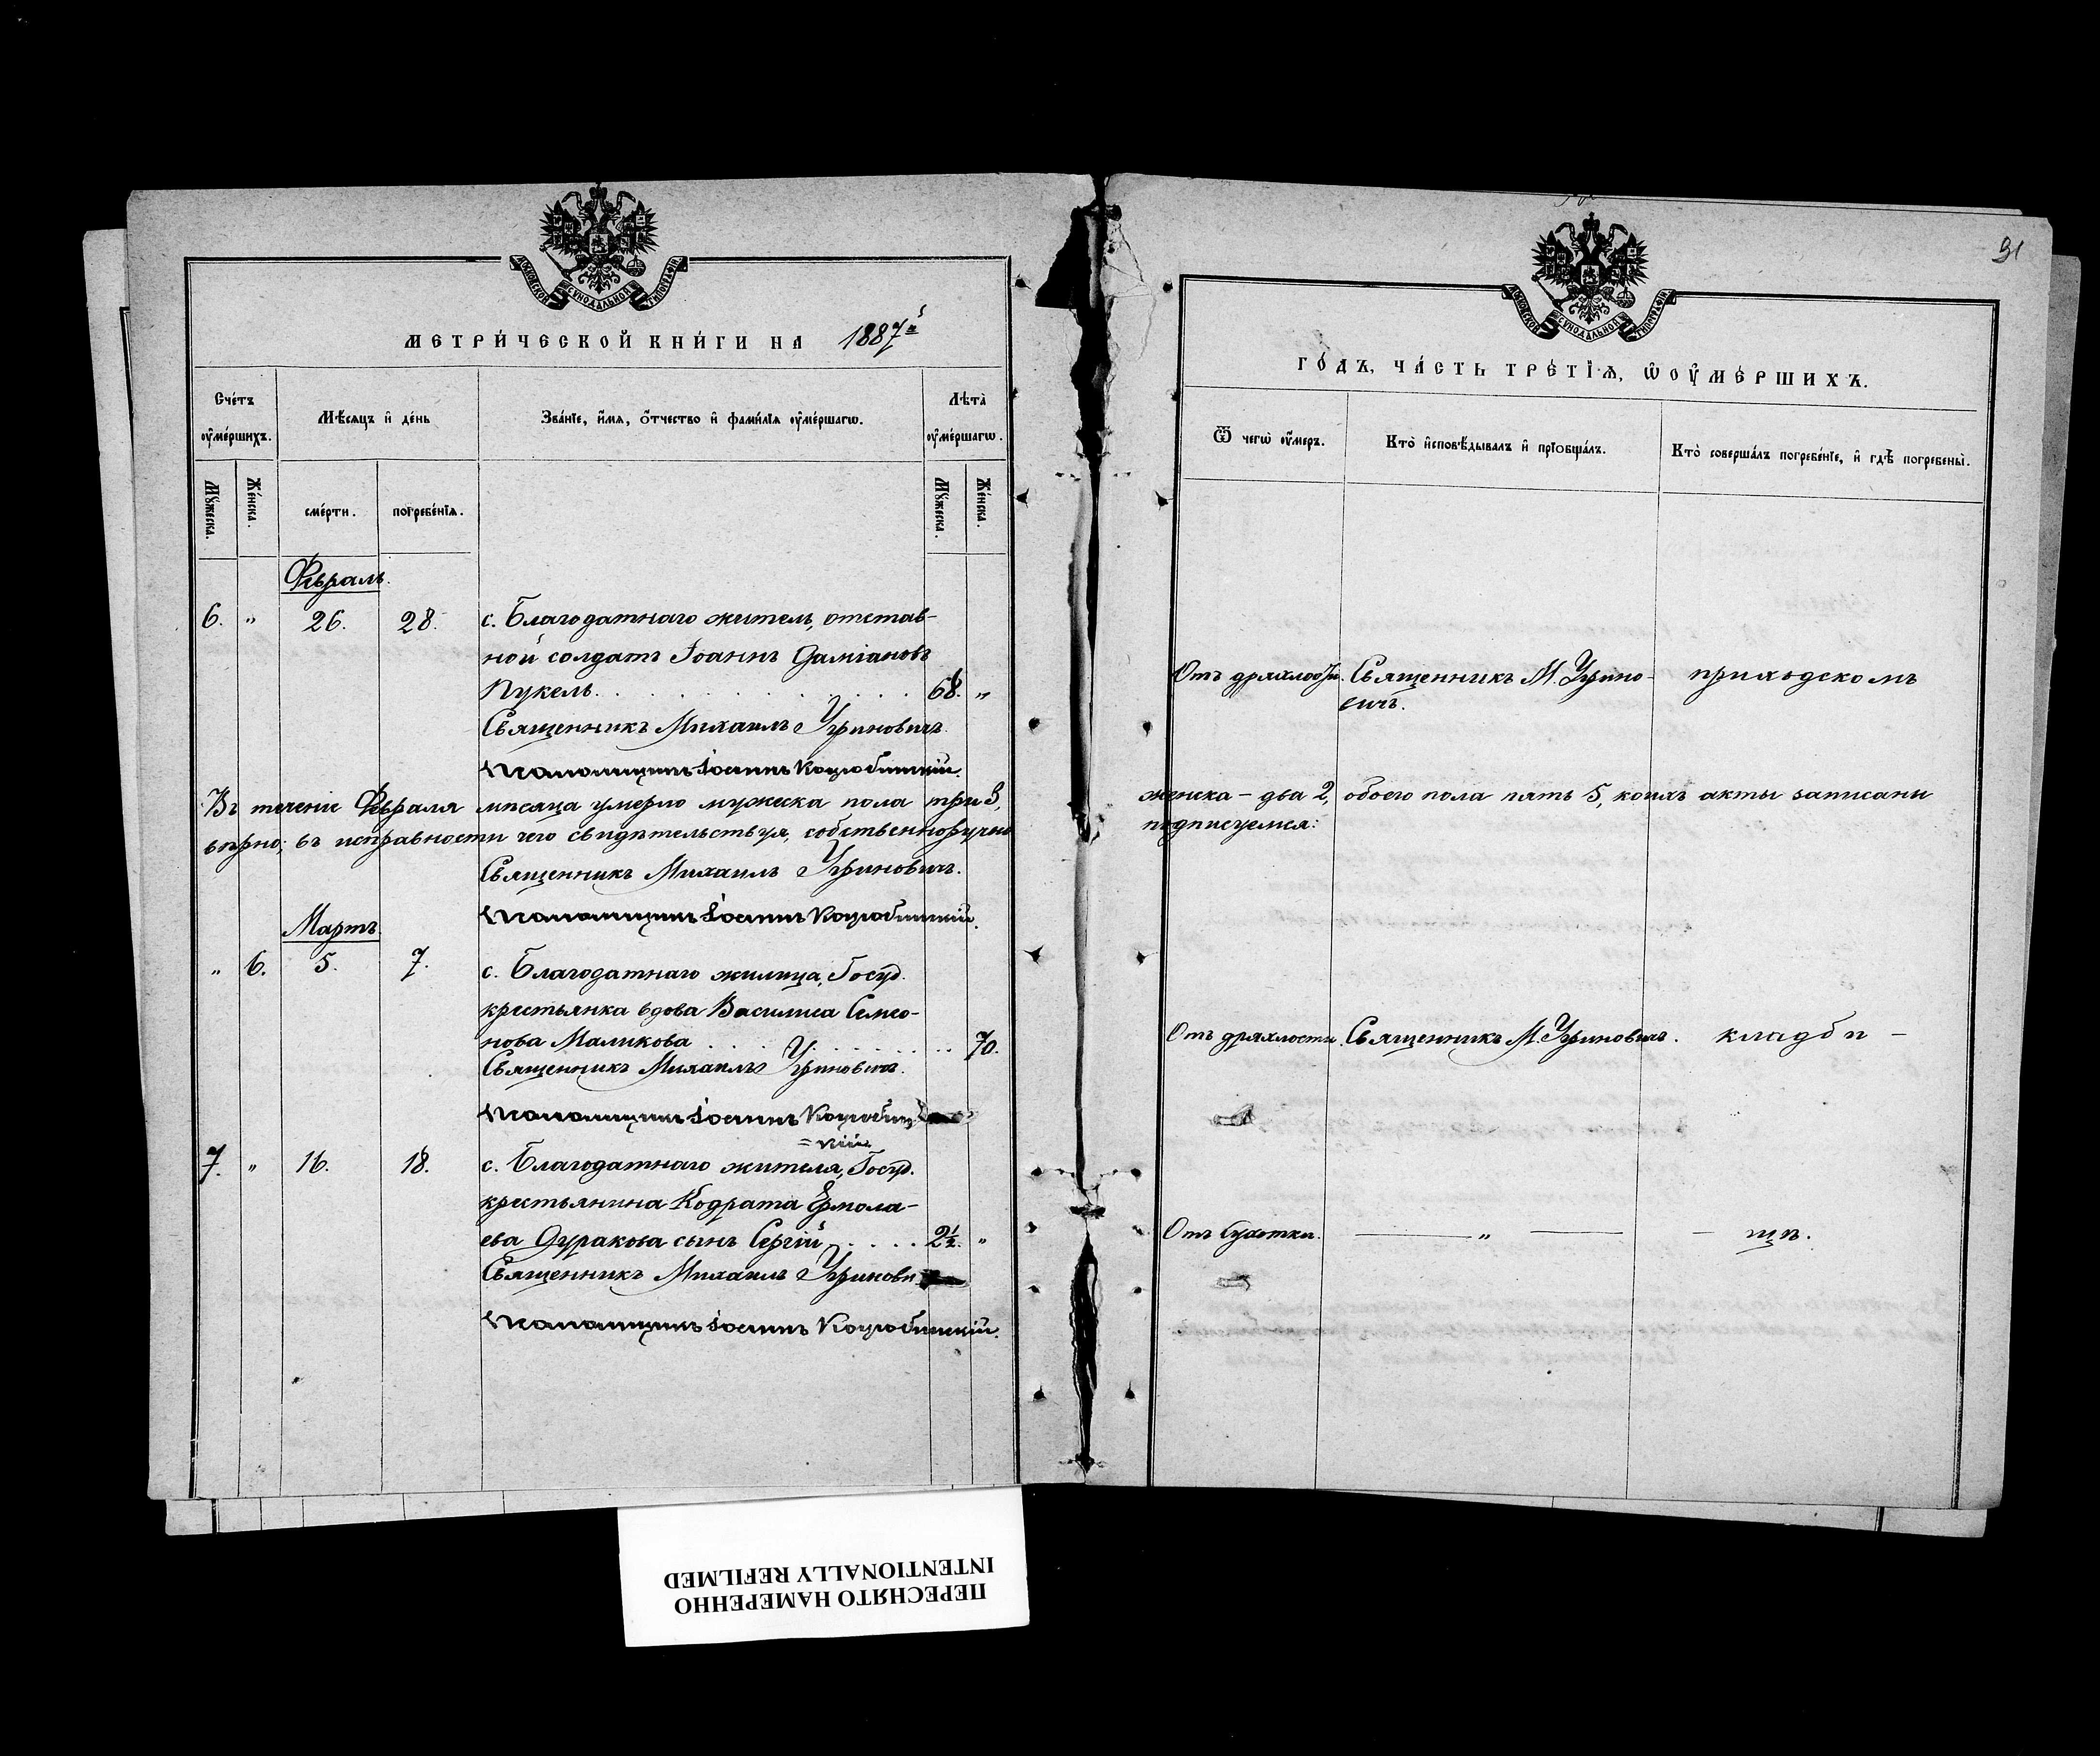 МОСКОВСКОЙ СѴНОДАЛЬНОЙ ТИПОГРАФІИ
МЕТРИ́ЧЕСКОЙ КНИ́ГИ НА 1887й
Сче́тъ оу҆ме́ршихъ.
Мѣ́сяцъ и҆ де́нь
Зва́нїе, и҆́мѧ, ѻ҆́тчество и҆ фами́лїѧ оу҆ме́ршагѡ.
Лѣта̀ оу҆ме́ршагѡ.
Мꙋ́жеска.
Же́нска.
сме́рти.
погребе́нїѧ.
Мꙋ́жеска.
Же́нска.
Февраль.
6. " 26. 28. с. Благодатнаго житель, отстав-
ной солдатъ Іоаннъ Даміановъ
Пукель. 68. "
Священникъ Михаилъ Угриновичъ.
Псаломщикъ Іоаннъ Коцюбинскій.
Въ теченіе Февраля мѣсяца умерло мужеска пола три 3,
вѣрно; въ исправности чего свидѣтельствуя, собственноручно
Священникъ Михаилъ Угриновичъ.
Псаломщикъ Іоаннъ Коцюбинскій.
Мартъ.
" 6. 5. 7. с. Благодатнаго жилица, Госуд.
крестьянка вдова Василиса Семео-
нова Маликова 70.
Священникъ Михаилъ Угриновичъ.
Псаломщикъ Іоаннъ Коцюбин
=скій
7. " 16. 18. с. Благодатнаго жителя, Госуд.
крестьянина Кодрата Ермола-
ева Дуракова сынъ Сергій 2½. "
Священникъ Михаилъ Угринови
Псаломщикъ Іоаннъ Коцюбинскій.
91
МОСКОВСКОЙ СѴНОДАЛЬНОЙ ТИПОГРАФІИ
ГО́ДЪ, ЧА́СТЬ ТРЕ́ТЇѦ, Ѡ҆ ОУ҆МЕ́РШИХЪ.
Ѿ чегѡ̀ оу҆́меръ.
Кто̀ и҆сповѣ́дывалъ и҆ прїобща́лъ.
Кто̀ соверша́лъ погребе́нїе, и҆ гдѣ̀ погребены̀.
Отъ дряхлости. Священникъ М. Угрино- приходскомъ
вичъ.
женска - два 2, обоего пола пять 5, коихъ акты записаны
подписуемся:
Отъ дряхлости. Священникъ М. Угриновичъ. кладби -
Отъ сухотки. " - щѣ.
ПЕРЕСНЯТО НАМЕРЕННО
INTENTIONALLY REFILMED